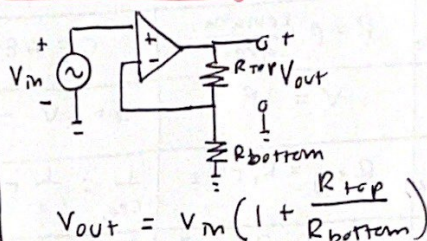 +
+
+
-
RTop
Vout
Vin
-
Rbottom
Vout = Vin (1 + Rtop / Rbottom)